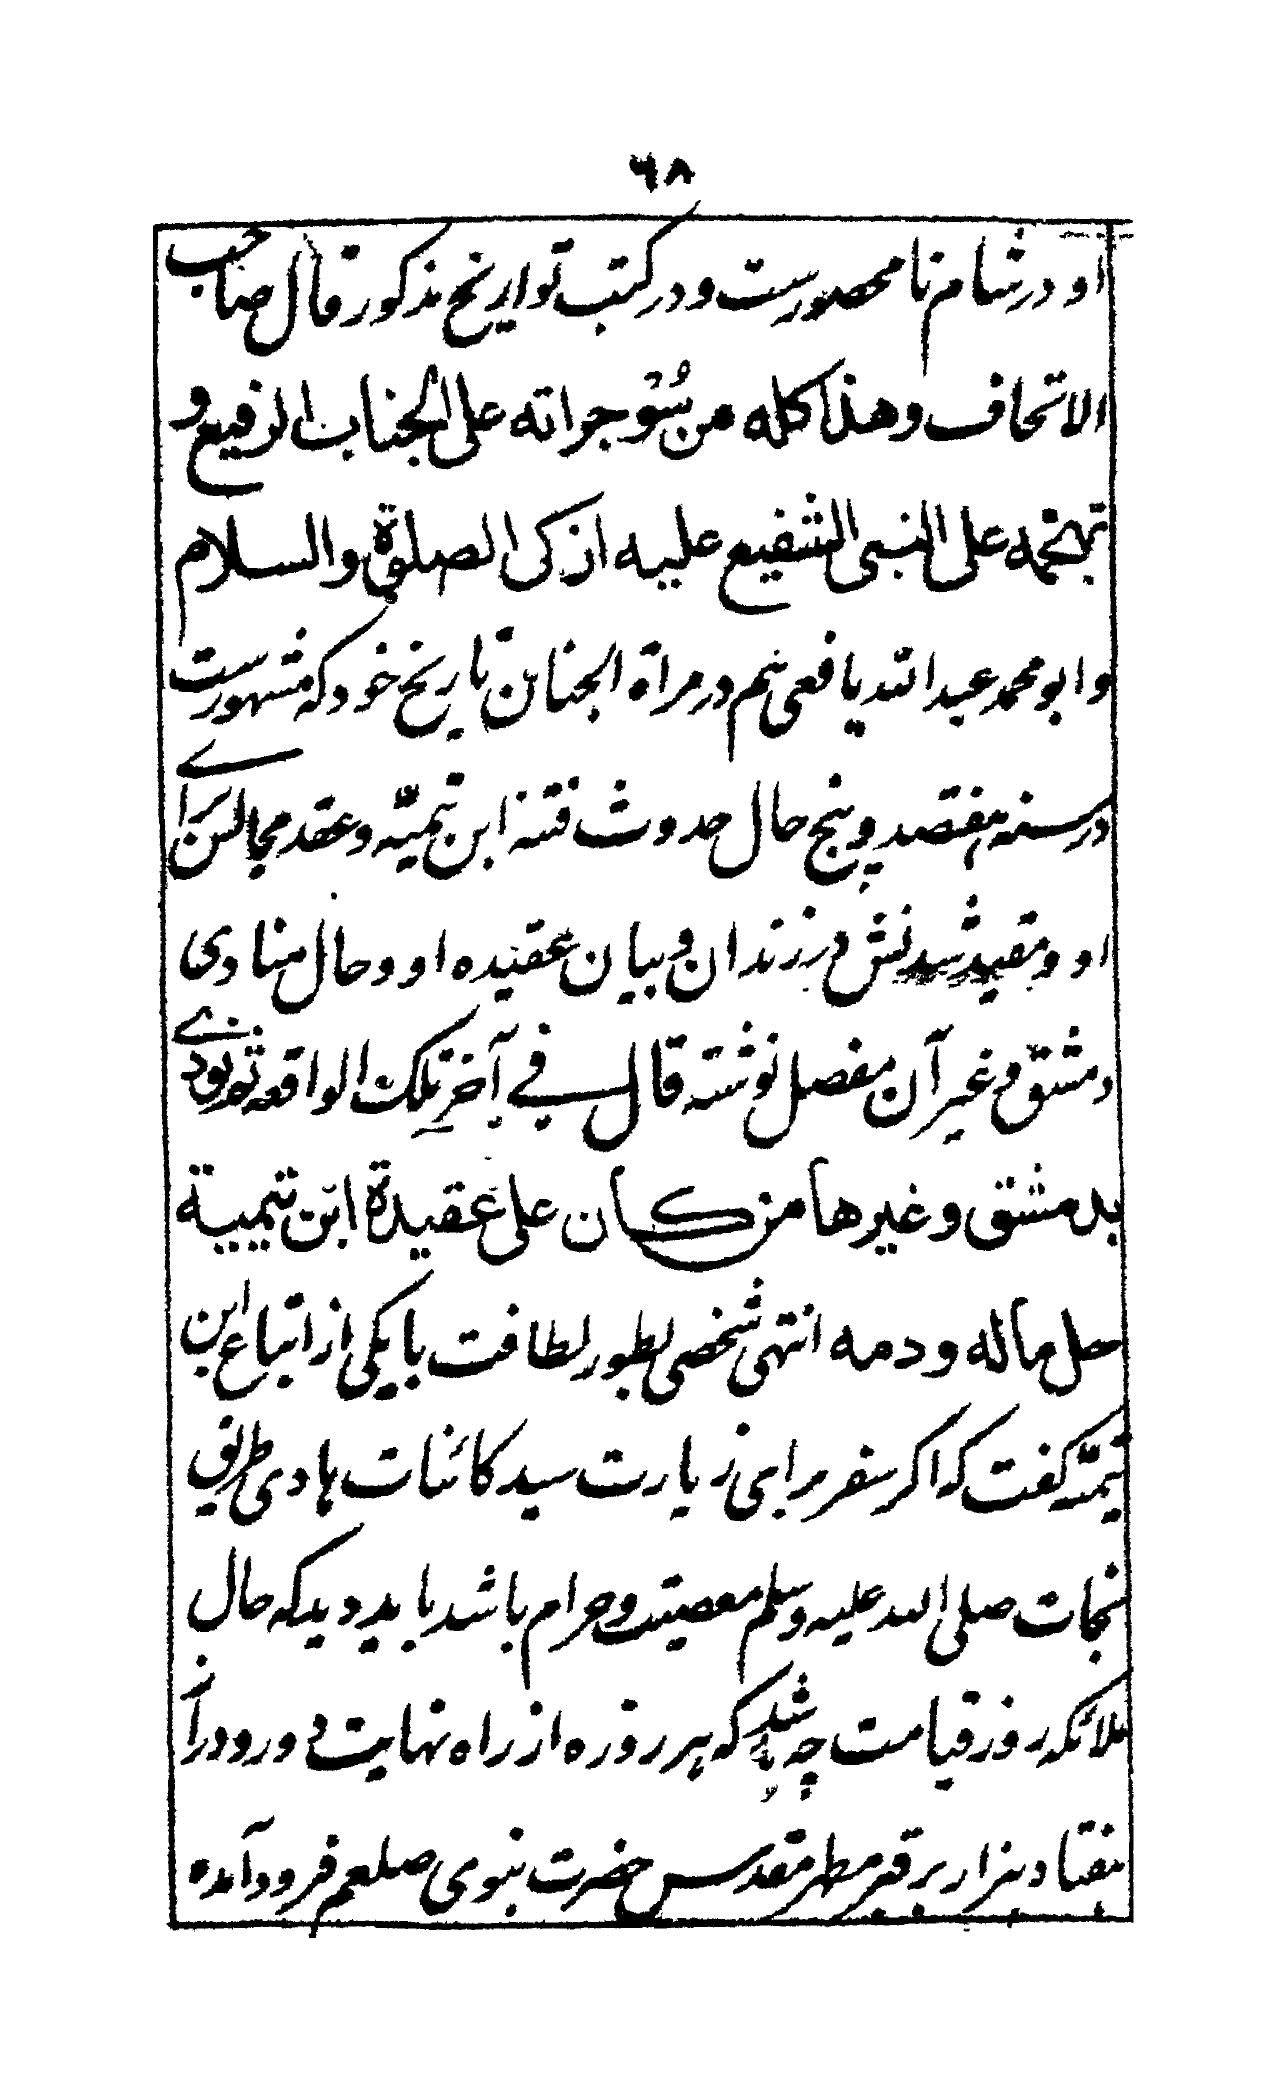 ٦٨
او در شام نا محصورست و در کتب تواریخ مذکور قال صاحب
الاتحاف وهذا کله من سُوٓء جراته علی الجناب الرفیع و
تهجمه علی النبی الشفیع علیه ازکی الصلوة والسلام
و ابو محمد عبد الله یافعی هم در مراة الجنان تاریخ خود که مشهورست
در سنه هفتصد و پنج حال حدوث فتنه ابن تیمیّه و عقد مجالس برای
او و مقید شدنش در زندان و بیان عقیده او و حال منادی
دمشق و غیر آن مفصل نوشته قال فی آخر تلک الواقعه ثم نودی
بدمشق وغیرها من کان علی عقیدة ابن تیمیة
حل ماله ودمه انتهی شخصی بطور لطافت با یکی از اتباع ابن
تیمیّه گفت که اگر سفر برای زیارت سید کائنات هادی طریق
نجات صلی الله علیه وسلم معصیت و حرام باشد باید دید که حال
ملائکه روز قیامت چه باشد که هر روزه از راه نهایت دور و دراز
هفتاد هزار بر قبر مطهر مقدس حضرت نبوی صلعم فرود آمده